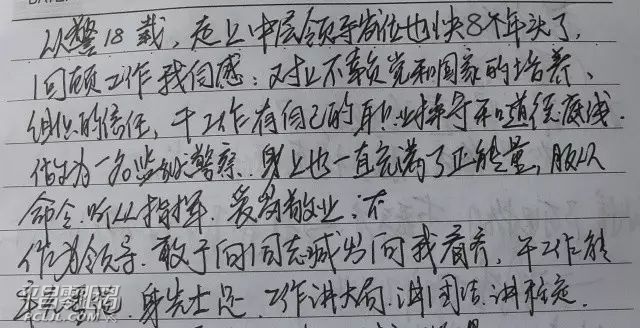 从警18载，走上中层领导岗位也快8个年头了，
回顾工作我自感：对上不辜负党和国家的培养、
组织的信任，干工作有自己的职业操守和道德底线。
作为一名监狱警察，身上也一直充满了正能量，服从
命令、听从指挥、爱岗敬业；不
作为领导，敢于向同志喊出向我看齐，干工作能
身先士卒，工作讲大局、讲团结、讲稳定。